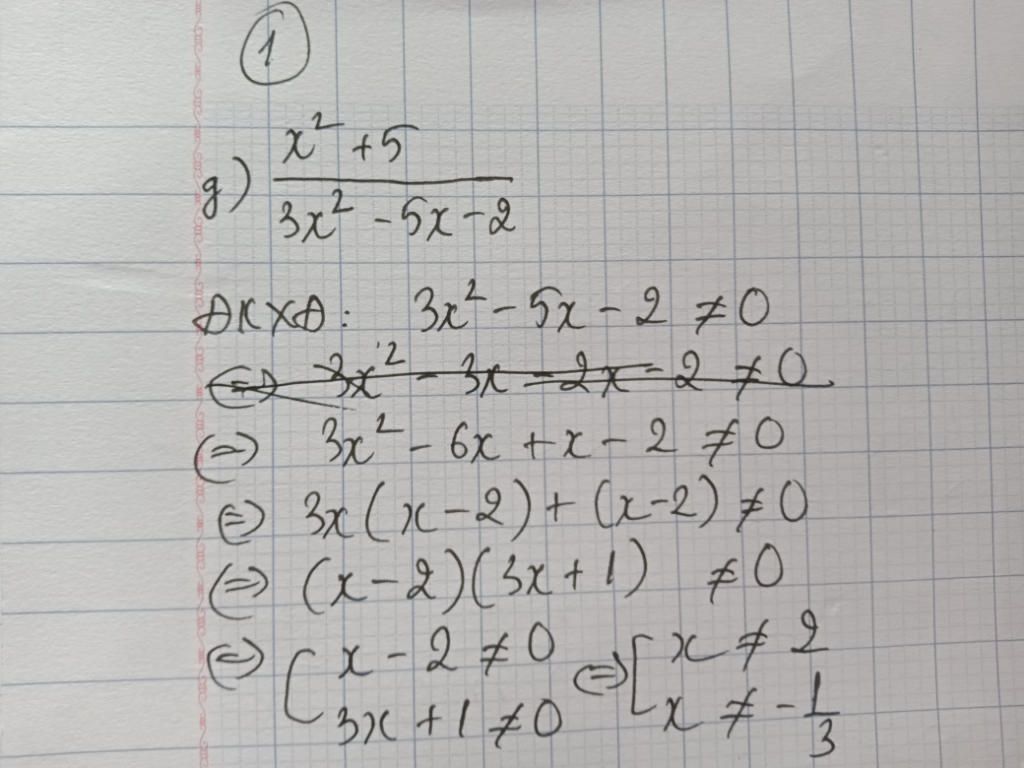 1
g) \frac{x^2 + 5}{3x^2 - 5x - 2}
ĐKXĐ: 3x² - 5x - 2 ≠ 0
(=) 3x² - 3x - 2x - 2 ≠ 0
(=) 3x² - 6x + x - 2 ≠ 0
(=) 3x(x - 2) + (x - 2) ≠ 0
(=) (x - 2)(3x + 1) ≠ 0
(=) [ x - 2 ≠ 0 (=) [ x ≠ 2
3x + 1 ≠ 0 x ≠ -\frac{1}{3}